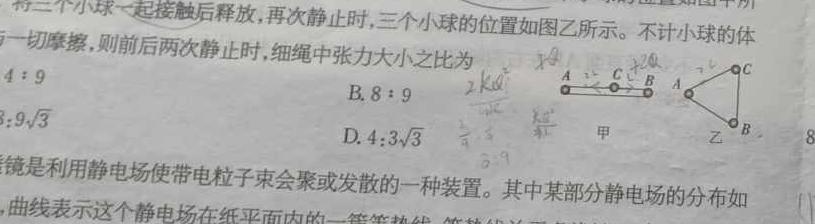 将三个小球一起接触后释放,再次静止时,三个小球的位置如图乙所示。不计小球的体
一切摩擦,则前后两次静止时,细绳中张力大小之比为
4:9
B. 8:9
8:9√3
D. 4:3√3
A C B
甲
A C B
乙
8
镜是利用静电场使带电粒子束会聚或发散的一种装置。其中某部分静电场的分布如
,曲线表示这个静电场在纸平面内的一